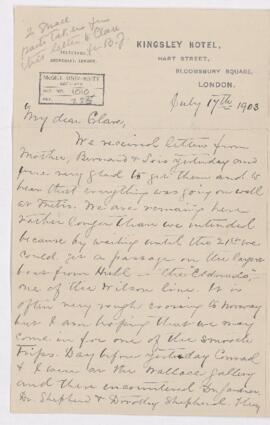 2 small
parts taken from
this letter to Clare
for B.J.
KINGSLEY HOTEL,
HART STREET,
BLOOMSBURY SQUARE,
LONDON.
TELEGRAMS,
LONDON.
McGILL UNIVERSITY
ACC. NO. 1010
REF. 
July 17th 1903
My dear Clare,
We received letters from
Mother, Bernard & Sons yesterday and
were very glad to get them and to
hear that everything was going on well
at Metis. We are remaining here
rather longer than we intended
because by waiting until the 21st we
could get a passage on the large
boat from Hull – the "Eldorado",
one of the Wilson line. It is
often very rough crossing to Norway
but I am hoping that we may
come in for one of the smooth
trips. Day before yesterday Conrad
& I were at the Wallace gallery
and there encountered Dr.
Dr. Shepherd & Dorothy Shepherd. They